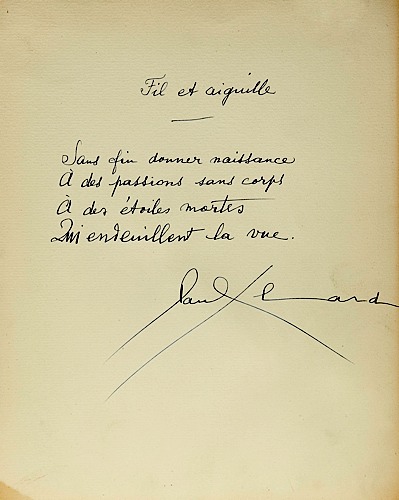 Fil et aiguille
Sans fin donner naissance
À des passions sans corps
À des étoiles mortes
Qui endeuillent la vue.
Paul Eluard